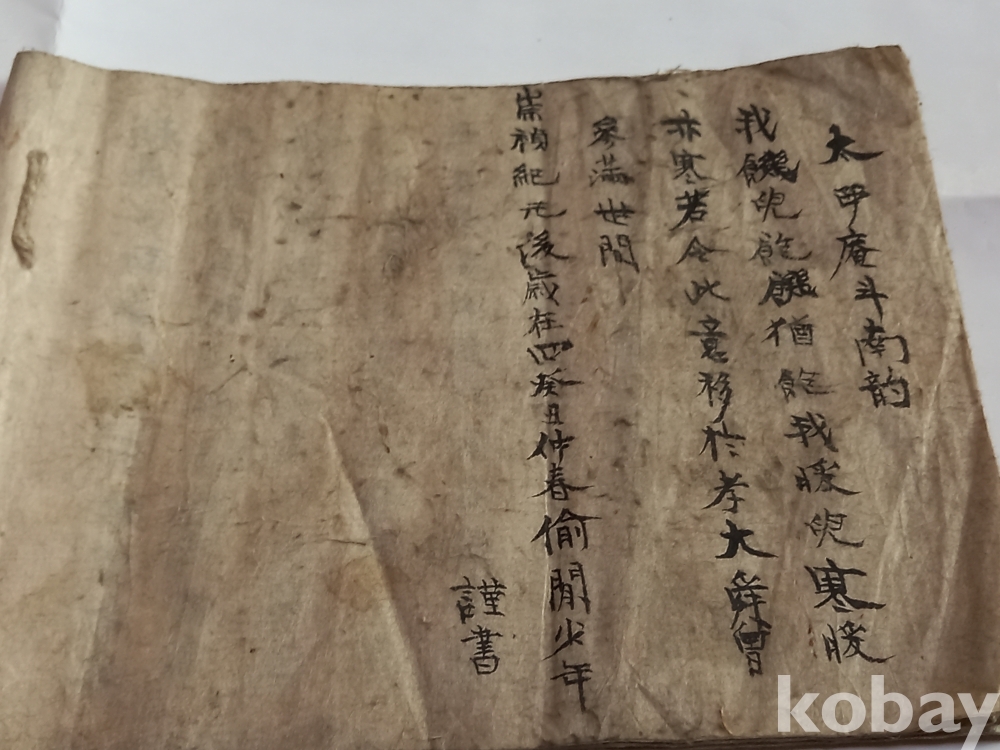 太甲庵斗南韵
我饑兒飽饑猶飽我暖兒寒暖
亦寒若令此意移於孝大舜曾
參滿世間
崇禎紀元後歲在四癸丑仲春偷閒少年
謹書
kobay